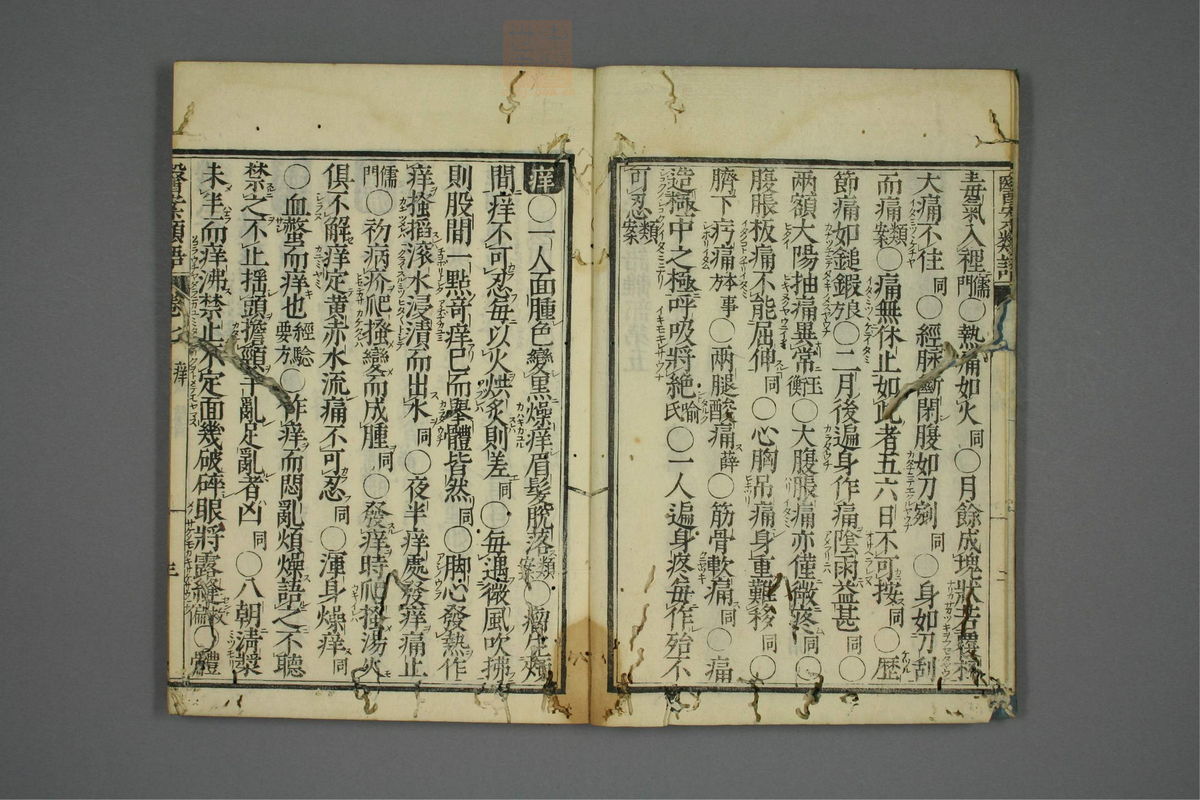 毒氣入裡儒門○熱痛如火同○月餘成塊狀若覆杯
大痛不住同○經脉斷閉腹如刀剜同○身如刀刮
而痛類案○痛無休止如此者五六日不可按同○歴
節痛如鎚鍜同○二月後遍身作痛陰雨益甚同○
兩額大陽抽痛異常王衡○大腹脹痛亦僅微疼同○
腹脹板痛不能屈伸同○心胸吊痛身重難移同○
臍下㽲痛本事方○兩腿酸痛薛○筋骨軟痛同○痛
造極中之極呼吸將絶喻氏○一人遍身疼毎作殆不
可忍類案
痒○一人面腫色變黒燥痒眉髮脫落類案○
間痒不可忍毎以火烘炙則差同○毎遇微風吹拂
則股間一點奇痒已而舉體皆然同○脚心發熱作
痒搔搯滾水浸漬而出水同○夜半痒處發痒痛止
儒門○初病疥爬搔變而成腫同○發痒時爬搔湯火
俱不解痒定黄赤水流痛不可忍同○渾身燥痒同
○血蟄而痒也經驗要方○作痒而悶亂煩燥語之不聽
禁之不止揺頭擔頸手亂足亂者凶同○八朝清漿
未半而痒沸禁止不定面幾破碎眼將露縫救偏○體
醫案類語 卷七 痒 三